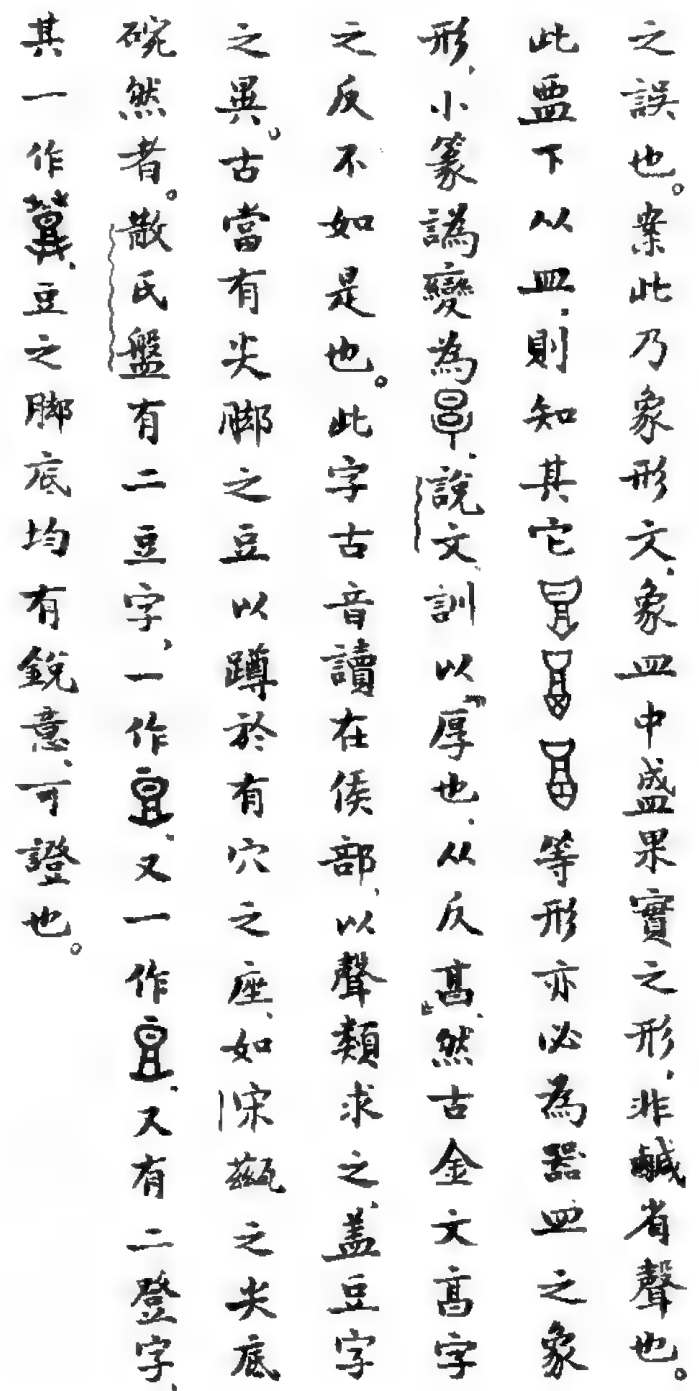 之誤也。案此乃象形文、象皿中盛果實之形、非鹹省聲也。
此䀇下从皿、則知其它等形亦必為器皿之象
形、小篆譌變為、說文訓以「厚也、从反亯」、然古金文亯字
之反不如是也。此字古音讀在侯部、以聲類求之、蓋豆字
之異。古當有尖脚之豆以蹲於有穴之座、如宋甆之尖底
碗然者。散氏盤有二豆字、一作、又一作、又有二登字、
其一作、豆之脚底均有銳意、可證也。